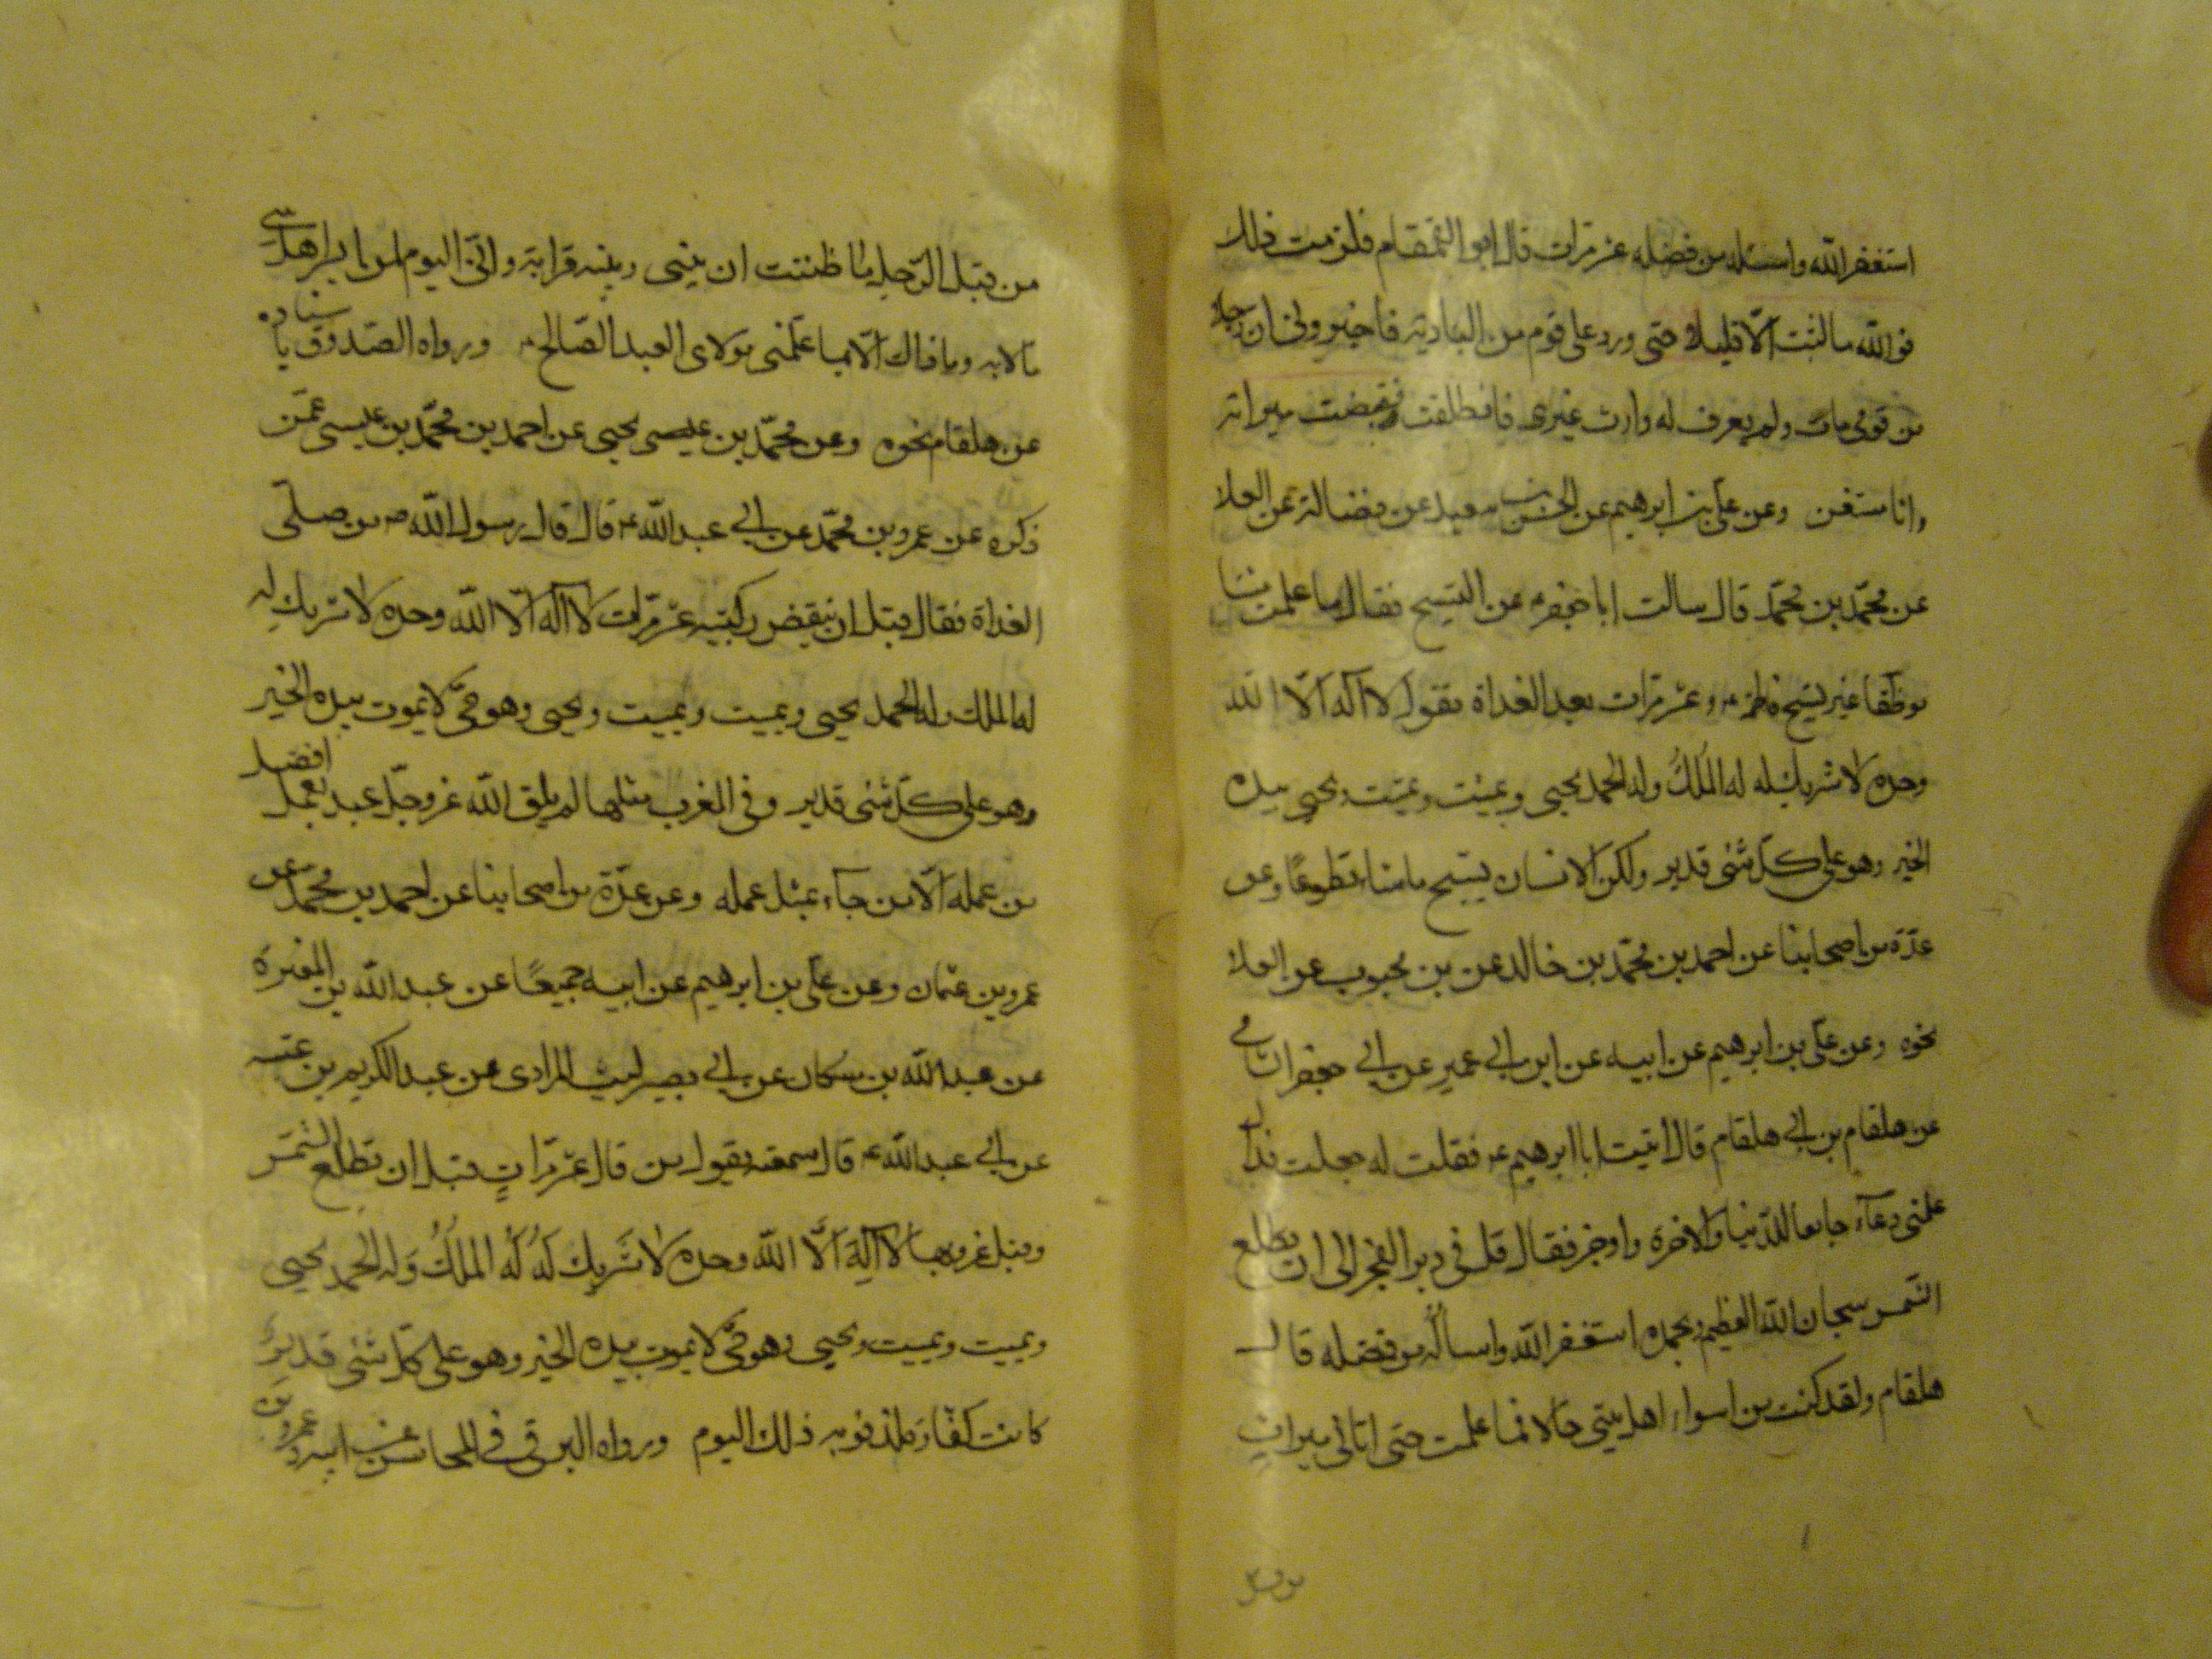 استغفر الله واسئله من فضله عشر مرات قال ابو القمقام فلزمت ذلك
فوالله ما لبثت الّا قليلا حتى ورد على قوم من البادية فاخبروني ان رجلا
من قومي مات ولم يعرف له وارث غيري فانطلقت فقبضت ميراثه
وانا مستغن وعن علي بن ابرهيم عن الحسن بن سعيد عن فضالة عن العلا
عن محمّد بن محمّد قال سالت ابا جعفر ع عن التسبيح فقال ما علمت شيئا
موظفا غير تسبيح فاطمة ع وعشر مرات بعد الغداة تقول لا اله الّا الله
وحده لا شريك له له الملك وله الحمد يحيي ويميت ويميت ويحيي بيده
الخير وهو على كلّ شئ قدير ولكن الانسان يسبح ما شاء تطوعًا وعن
عدّة من اصحابنا عن احمد بن محمّد بن خالد عن بن محبوب عن العلا
نحوه وعن علي بن ابرهيم عن ابيه عن ابن ابي عمير عن ابي جعفر الشامي
عن هلقام بن ابي هلقام قال اتيت ابا ابرهيم ع فقلت له جعلت فداك
علمني دعاء جامعا للدّنيا والاخرة واوجز فقال قل في دبر الفجر الى ان تطلع
الشمس سبحان الله العظيم وبحمده استغفر الله واسأله من فضله قال
هلقام ولقد كنت من اسواء اهل بيتي حالا فما علمت حتى اتاني ميراث
من قبل
من قبل الرّجل ما ظننت ان بيني وبينه قرابة وانّي اليوم لمن ايسر اهل بيتي
مالا به وما ذاك الّا بما علّمني مولاي العبد الصّالح ع ورواه الصّدوق باسناده
عن هلقام نحوه وعن محمّد بن عيصى يحيى عن احمد بن محمّد بن عيسى عمّن
ذكره عن عمرو بن محمّد عن ابي عبد الله ع قال قال رسول الله ص من صلّى
الغداة فقال قبل ان ينقض ركبتيه عشر مرات لا اله الّا الله وحده لا شريك له
له الملك وله الحمد يحيي ويميت ويميت ويحيي وهو حيّ لا يموت بيده الخير
وهو على كلّ شئ قدير وفي المغرب مثلها لم يلق الله عز وجلّ عبد بعمل افضل
من عمله الّا من جاء بمثل عمله وعن عدّة من اصحابنا عن احمد بن محمّد عن
عمرو بن عثمان وعن علي بن ابرهيم عن ابيه جميعًا عن عبد الله بن المغيرة
عن عبد الله بن مسكان عن ابي بصير ليث المرادي عن عبد الكريم بن عتبه
عن ابي عبد الله ع قال سمعته يقول من قال عشر مرّاتٍ قبل ان تطلع الشمس
وقبل غروبها لا اله الّا الله وحده لا شريك لَهُ لَهُ الملكُ وَله الحمد يحيي
ويميت ويميت ويحيي وهو حيّ لا يموت بيده الخير وهو على كلّ شئ قديرٌ
كانت كفّارة لذنوبه ذلك اليوم ورواه البرقي في المحاسن عن ابيه وعمرو بن